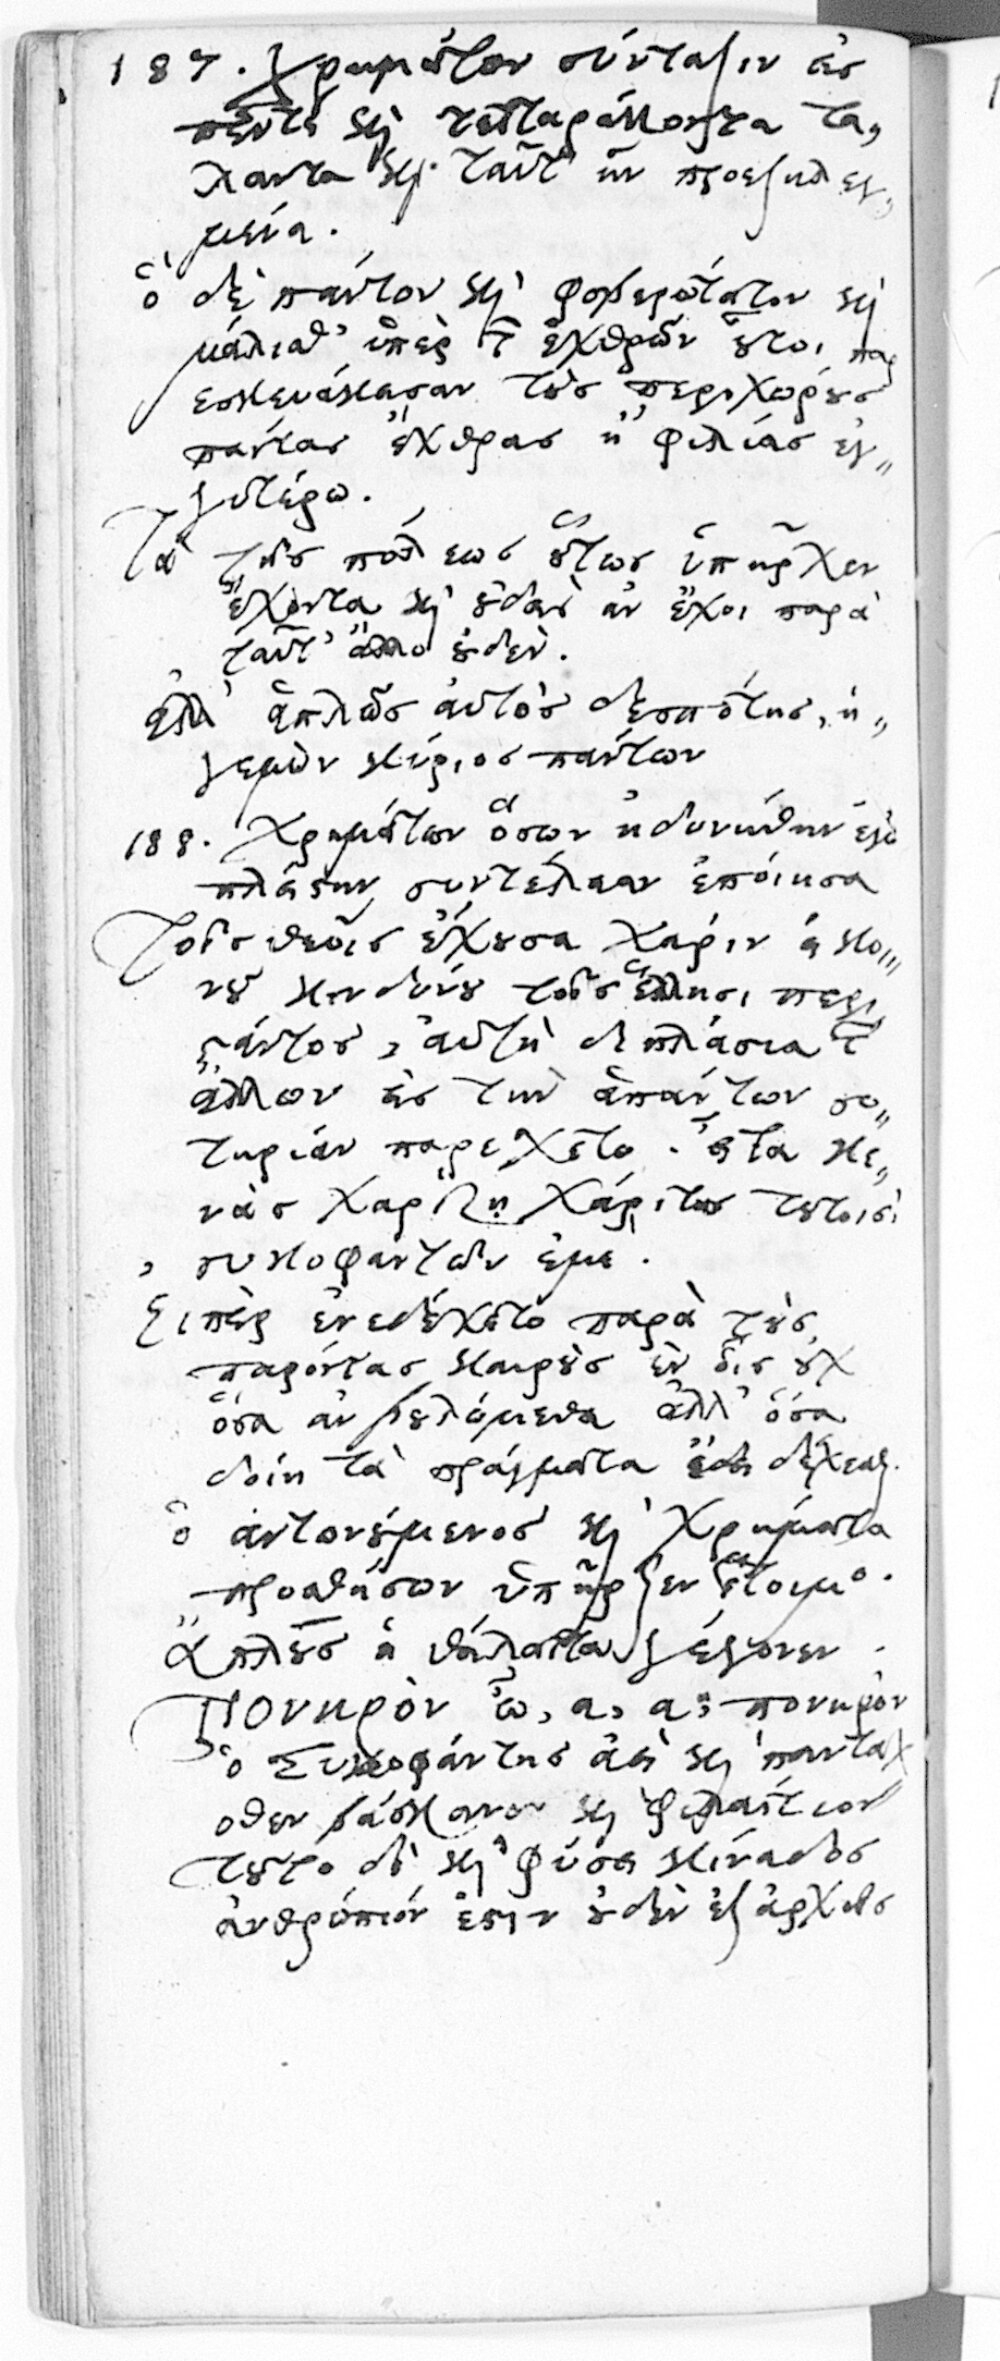 187. χρημάτων σύνταξιν εἰς
πέντε καὶ τετταράκοντα τα,
λαντα καὶ ταῦτ' ἦν προεξειλεγ,,
μένα.
ὃ δὲ πάντων καὶ φοβερώτατον καὶ
μάλισθ' ὑπὲρ τῶν ἐχθρῶν οὗτοι παρ
εσκευάκασαν τοὺς περιχώρους
πάντας ἔχθρας ἢ φιλίας ἐγ,,
γυτέρω.
Τὰ τῆς πόλεως οὕτως ὑπῆρχεν
ἔχοντα καὶ οὐδεὶς ἂν ἔχοι παρὰ
ταῦτ' ἄλλο οὐδέν.
ἀλλ' ἁπλῶς αὐτὸς δεσπότης, ἡ,,
γεμὼν κύριος πάντων
188. χρημάτων ὅσων ἠδυνήθην ἐγὼ
πλείστην συντέλειαν ἐποίησα
τοῖς θεοῖς ἔχουσα χάριν εἰ κοι,,
νοῦ κινδύνου τοῖς ἕλλησι περι
στάντος, αὐτὴ διπλάσια τῶν
ἄλλων εἰς τὴν ἁπάντων σω,,
τηρίαν παρείχετο. εἶτα κε,,
νὰς χαρίζῃ χάριτας τουτοισὶ
συκοφαντῶν ἐμέ.
Εἴπερ ἐνεδέχετο παρὰ τοὺς
παρόντας καιροὺς ἐν οἷς οὐχ
ὅσα ἂν βουλώμεθα ἀλλ' ὅσα
δοίη τὰ πράγματα ἔδει δέχεσθαι.
ὁ ἀντωνούμενος καὶ χρήματα
προσθήσων ὑπῆρχεν ἕτοιμος.
ἄπλους ἡ θάλαττα γέγονεν.
Πονηρὸν ὦ, α, α, πονηρὸν
ὁ συκοφάντης ἀεὶ καὶ πανταχ
όθεν βάσκανον καὶ φιλαίτιον
τοῦτο δὲ καὶ φύσει κίναδος
ἀνθρώπιόν ἐστιν οὐδὲν ἐξ ἀρχῆς